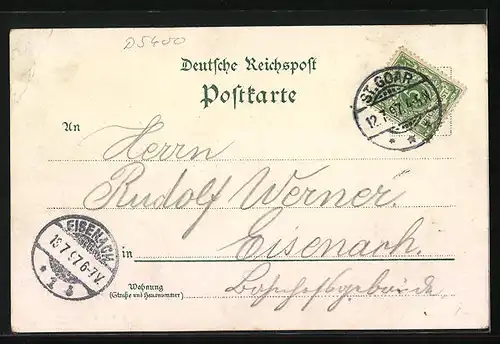 D5400
Deutsche Reichspost
Postkarte
ST. GOAR
12.7.97.
An Herrn
Rudolf Werner.
EISENACH
13.7.97.6-7V.
* 1 b
in Eisenach
Wohnung
(Straße und Hausnummer)
Bahnhofsgebäude